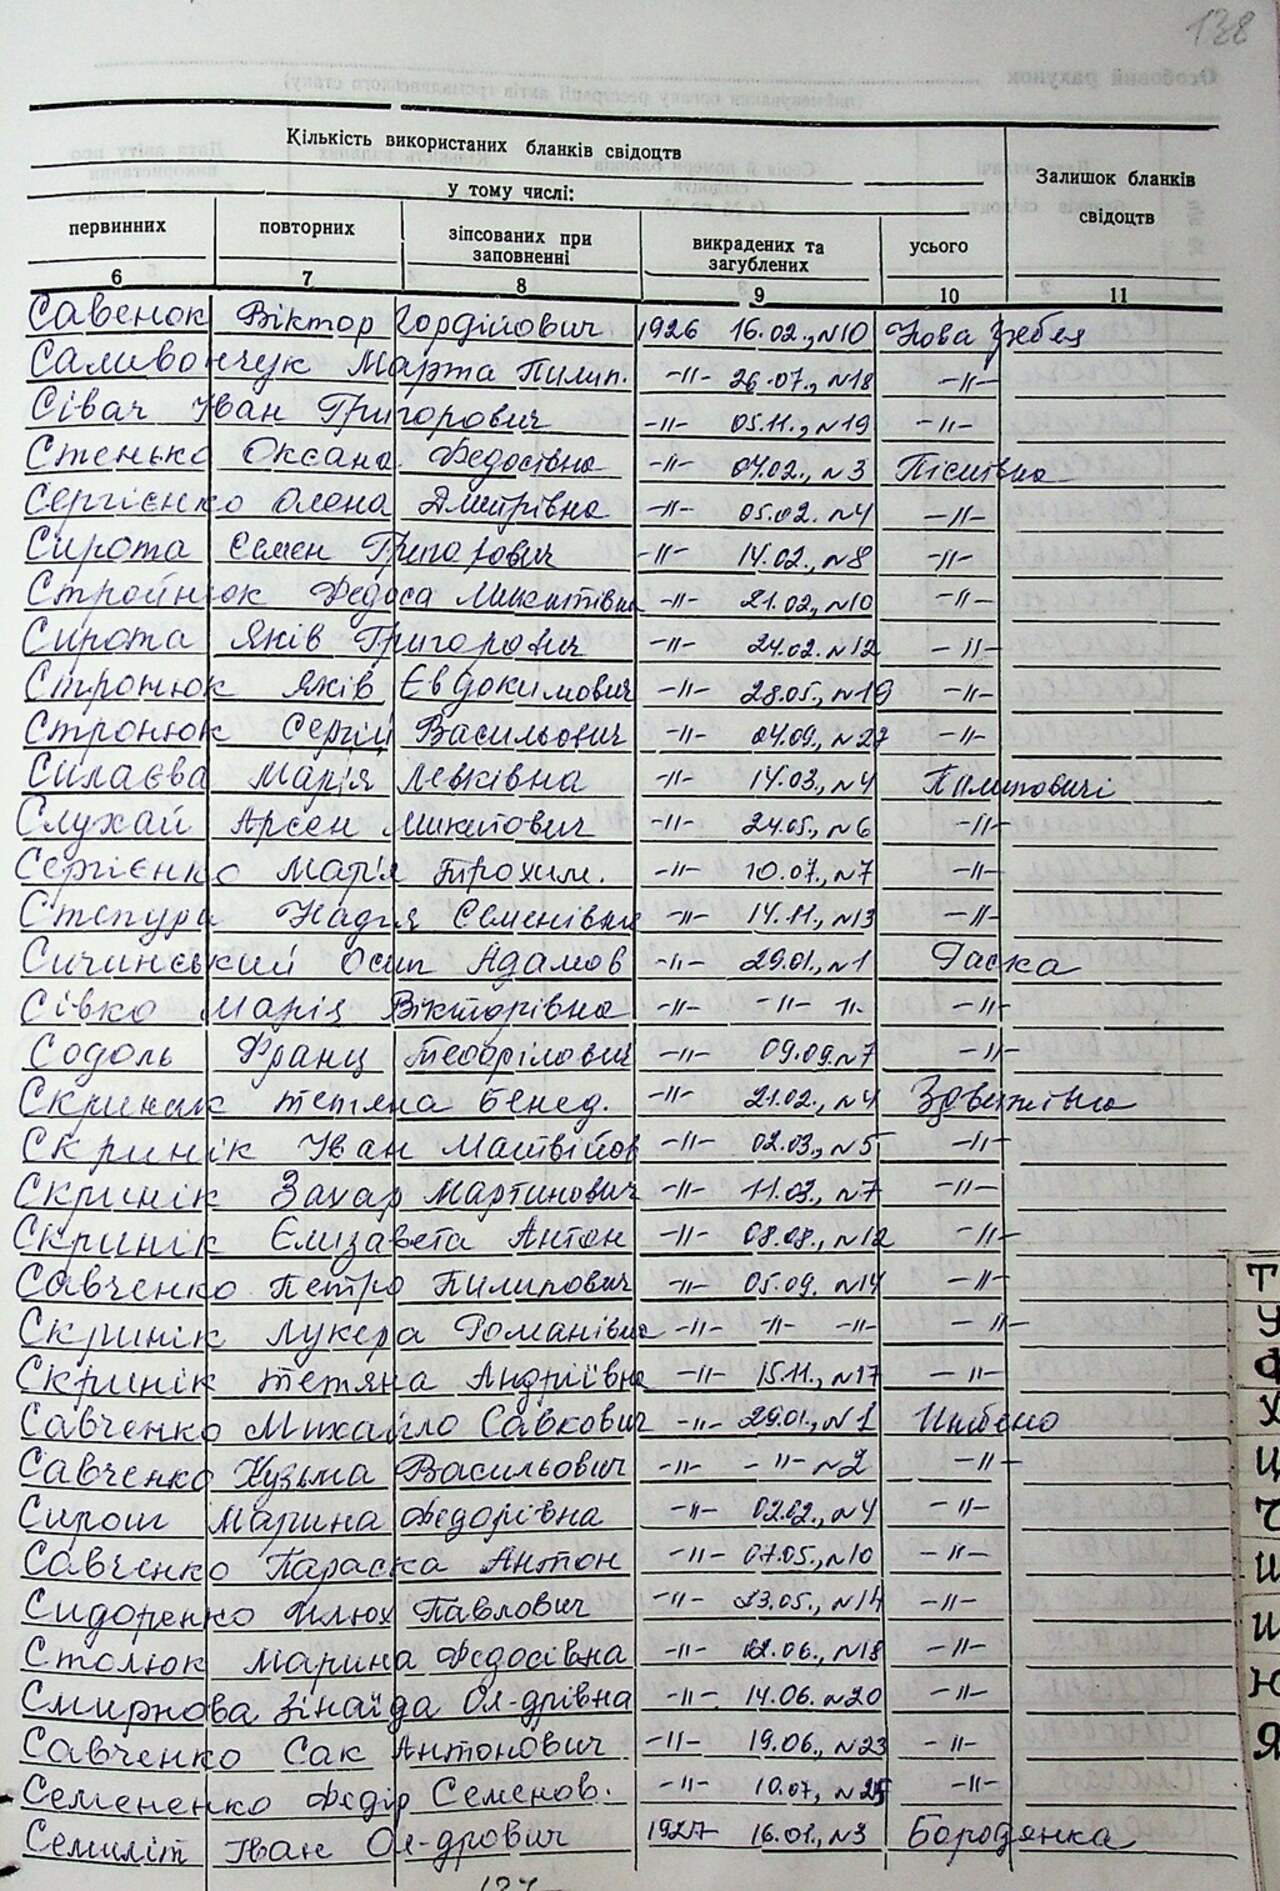 138
Кількість використаних бланків свідоцтв
у тому числі:
Залишок бланків свідоцтв
первинних повторних зіпсованих при заповненні викрадених та загублених усього
6 7 8 9 10 11
Савенок Віктор Гордійович 1926 16.02., №10 Нова Гребля
Саливончук Марта Пилип. -"- 26.07., №18 -"-
Сівач Іван Григорович -"- 05.11., №19 -"-
Стенько Оксана Федосівна -"- 04.02., №3 Пісківка
Сергієнко Олена Дмитрівна -"- 05.02. №4 -"-
Сирота Семен Григорович -"- 14.02., №8 -"-
Стройнюк Федоса Микитівна -"- 21.02., №10 -"-
Сирота Яків Григорович -"- 24.02. №12 -"-
Стронюк Яків Євдокимович -"- 28.05., №19 -"-
Стронюк Сергій Васильович -"- 04.09., №27 -"-
Силаєва Марія Левківна -"- 14.03., №4 Пилиповичі
Слухай Арсен Микитович -"- 24.05., №6 -"-
Сергієнко Марія Трохим. -"- 10.07., №7 -"-
Степура Надія Семенівна -"- 14.11., №13 -"-
Сичинський Осип Адамов -"- 29.01., №1 Раска
Сівко Марія Вікторівна -"- -"- "- -"-
Содоль Франц Теофілович -"- 09.09. №7 -"-
Скринік Тетяна Бенед. -"- 21.02., №4 Здвижівка
Скринік Іван Матвійов -"- 02.03., №5 -"-
Скринік Захар Мартинович -"- 11.03., №7 -"-
Скринік Єлізавета Антон -"- 08.08., №12 -"-
Савченко Петро Пилипович -"- 05.09. №14 -"-
Скринік Лукера Романівна -"- -"- -"- -"-
Скринік Тетяна Андріївна -"- 15.11., №17 -"-
Савченко Михайло Савкович -"- 29.01., №1
Савченко Кузьма Васильович -"- -"- №2 -"-
Сирош Марина Федорівна -"- 02.02., №4 -"-
Савченко Параска Антон -"- 07.05., №10 -"-
Сидоренко Павлович -"- 23.05., №14 -"-
Столюк Марина Федосівна -"- 02.06., №18 -"-
Смирнова Зінаїда Ол-дрівна -"- 14.06. №20 -"-
Савченко Сак Антонович -"- 19.06., №23 -"-
Семененко Федір Семенов. -"- 10.07, №25 -"-
Семиліт Іван Ол-дрович 1927 16.01., №3 Бородянка
Т
У
Ф
Х
Ц
Ч
Ш
Щ
Ю
Я